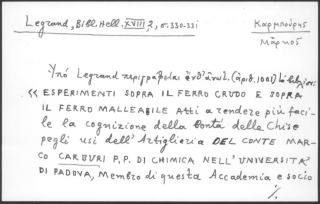 Legrand, Bibl. Hell. XVIII, 2, σ. 330-331
Καρμπούρης
Μάρκος
Ὑπό Legrand περιγράφεται ἐνθ' ἀνωτ. (ἀριθ. 1001)
« ESPERIMENTI SOPRA IL FERRO CRUDO E SOPRA
IL FERRO MALLEABILE Atti a rendere più faci-
le la cognizione della bontà delle Chise
pegli usi dell'Artiglieria DEL CONTE MAR-
CO CARBURI P.P. DI CHIMICA NELL'UNIVERSITA'
DI PADOVA, Membro di questa Accademia e socio